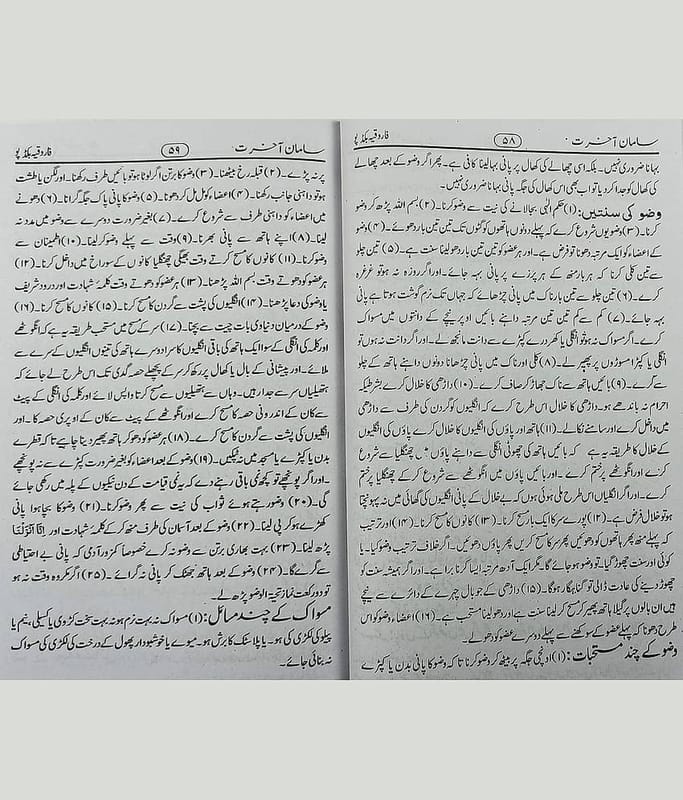 سامان آخرت ۵۸ فاروقیہ بکڈپو
بہانا ضروری نہیں۔ بلکہ اسی چھالے کی کھال پر پانی بہالینا کافی ہے۔ پھر اگر وضو کے بعد چھالے
کی کھال کو جدا کر دیا تو اب بھی اس کھال کی جگہ پانی بہانا ضروری نہیں۔
وضو کی سنتیں: (۱) حکم الٰہی بجالانے کی نیت سے وضو کرنا۔ (۲) بسم اللہ پڑھ کر وضو
کرنا۔ (۳) وضو یوں شروع کرے کہ پہلے دونوں ہاتھوں کو گٹوں تک تین تین بار دھوئے۔ (۴) وضو
کے اعضاء کو ایک مرتبہ دھونا تو فرض ہے۔ اور ہر عضو کو تین تین بار دھولینا سنت ہے۔ (۵) تین چلو
سے تین کلی کرنا کہ ہر بار منھ کے ہر پرزے پر پانی بہہ جائے۔ اور اگر روزہ نہ ہو تو غرغرہ
کرے۔ (۶) تین چلو سے تین بار ناک میں پانی چڑھائے کہ جہاں تک نرم گوشت ہوتا ہے پانی
بہہ جائے۔ (۷) کم سے کم تین تین مرتبہ داہنے بائیں اوپر نیچے کے دانتوں میں مسواک
کرے۔ اگر مسواک نہ ہو تو انگلی یا کھردرے کپڑے سے دانت مانجھ لے۔ اور اگر دانت نہ ہوں تو
انگلی یا کپڑا مسوڑوں پر پھیر لے۔ (۸) کلی اور ناک میں پانی چڑھانا دونوں داہنے ہاتھ کے چلو
سے کرے۔ (۹) بائیں ہاتھ سے ناک جھاڑ کر صاف کرے۔ (۱۰) داڑھی کا خلال کرے بشرطیکہ
احرام نہ باندھے ہو۔ داڑھی کا خلال اس طرح کرے کہ انگلیوں کو گردن کی طرف سے داڑھی
میں داخل کرے اور سامنے نکالے۔ (۱۱) ہاتھ اور پاؤں کی انگلیوں کا خلال کرے پاؤں کی انگلیوں
کے خلال کا طریقہ یہ ہے کہ بائیں ہاتھ کی چھوٹی انگلی سے داہنے پاؤں چھنگلیا سے شروع
کرے اور انگوٹھے پر ختم کرے۔ اور بائیں پاؤں میں انگوٹھے سے شروع کر کے چھنگلیا پر ختم
کرے۔ اور اگر انگلیاں اس طرح ملی ہوئی ہوں کہ بے خلال کے پانی انگلیوں کی گھائی میں نہ پہونچتا
ہو تو خلال فرض ہے۔ (۱۲) پورے سر کا ایک بار مسح کرنا۔ (۱۳) کانوں کا مسح کرنا۔ (۱۴) اور ترتیب
کہ پہلے منھ پھر ہاتھوں کو دھوئیں پھر سر کا مسح کریں پھر پاؤں دھوئیں۔ اگر خلاف ترتیب وضو کیا۔ یا
کوئی اور سنت چھوڑ گیا تو وضو ہو جائے گا۔ مگر ایک آدھ مرتبہ ایسا کرنا برا ہے۔ اور اگر ہمیشہ سنت کو
چھوڑ دینے کی عادت ڈالی تو گناہگار ہوگا۔ (۱۵) داڑھی کے جو بال چہرے کے دائرے سے نیچے
ہیں ان بالوں پر گیلا ہاتھ پھیر کر مسح کر لینا سنت ہے اور دھو لینا مستحب ہے۔ (۱۶) اعضاء وضو کو اس
طرح دھونا کہ پہلے عضو کے سوکھنے سے پہلے دوسرے عضو کو دھو لے۔
وضو کے چند مستحبات: (۱) اونچی جگہ پر بیٹھ کر وضو کرنا تا کہ وضو کا پانی بدن یا کپڑے
سامان آخرت ۵۹ فاروقیہ بکڈپو
پر نہ پڑے۔ (۲) قبلہ رخ بیٹھنا۔ (۳) وضو کا برتن اگر لوٹا ہو تو بائیں طرف رکھنا۔ اور لگن یا طشت
ہو تو داہنی جانب رکھنا۔ (۴) اعضاء کو مل مل کر دھونا۔ (۵) وضو کا پانی پاک جگہ گرانا۔ (۶) دھونے
میں اعضاء کو داہنی طرف سے شروع کرے۔ (۷) بغیر ضرورت دوسرے سے وضو میں مدد نہ
لینا۔ (۸) اپنے ہاتھ سے پانی بھرنا۔ (۹) وقت سے پہلے وضو کر لینا۔ (۱۰) اطمینان سے
وضو کرنا۔ (۱۱) کانوں کا مسح کرتے وقت بھیگی چھنگلیا کانوں کے سوراخ میں داخل کرنا۔ (۱۲)
ہر عضو کو دھوتے وقت بسم اللہ پڑھنا۔ (۱۳) ہر عضو کو دھوتے وقت کلمۂ شہادت اور درود شریف
یا وضو کی دعا پڑھنا۔ (۱۴) انگلیوں کی پشت سے گردن کا مسح کرنا۔ (۱۵) کانوں کا مسح کرنا۔ (۱۶)
وضو کے درمیان دنیاوی بات چیت سے بچنا۔ (۱۷) سر کے مسح میں مستحب طریقہ یہ ہے کہ انگوٹھے
اور کلمہ کی انگلی کے سوا ایک ہاتھ کی باقی انگلیوں کا سرا دوسرے ہاتھ کی تینوں انگلیوں کے سرے سے
ملائے۔ اور پیشانی کے بال یا کھال پر رکھ کر سر کے پچھلے حصہ گدی تک اس طرح لے جائے کہ
ہتھیلیاں سر سے جدا رہیں۔ وہاں سے ہتھیلیوں سے مسح کرتا واپس لائے اور کلمہ کی انگلی کے پیٹ
سے کان کے اندرونی حصہ کا مسح کرے اور انگوٹھے کے پیٹ سے کان کے اوپری حصہ کا۔ اور
انگلیوں کی پشت سے گردن کا مسح کرے۔ (۱۸) ہر عضو کو دھو کر ہاتھ پھیر دینا چاہیے تا کہ قطرے
بدن یا کپڑے یا مسجد میں نہ ٹپکیں۔ (۱۹) وضو کے بعد اعضاء کو بغیر ضرورت کپڑے سے نہ پونچھے
اور اگر پونچھے تو کچھ نمی باقی رہنے دے کہ یہ نمی قیامت کے دن نیکیوں کے پلہ میں رکھی جائے
گی۔ (۲۰) وضو رہتے ہوئے ثواب کی نیت سے پھر وضو کرنا۔ (۲۱) وضو کا بچا ہوا پانی
کھڑے ہو کر پی لینا۔ (۲۲) وضو کے بعد آسمان کی طرف منھ کر کے کلمۂ شہادت اور اِنَّا اَنْزَلْنَا
پڑھ لینا۔ (۲۳) بہت بھاری برتن سے وضو نہ کرے خصوصاً کمزور آدمی کہ پانی بے احتیاطی
سے گرے گا۔ (۲۴) وضو کے بعد ہاتھ جھٹک کر پانی نہ گرائے۔ (۲۵) اگر مکروہ وقت نہ ہو
تو دو رکعت نماز تحیۃ الوضو پڑھ لے۔
مسواک کے چند مسائل: (۱) مسواک نہ بہت نرم ہو نہ بہت سخت کڑوی یا کسیلی، نیم یا
پیلو کی لکڑی کی ہو۔ یا پلاسٹک کا برش ہو۔ میوے یا خوشبودار پھول کے درخت کی لکڑی کی مسواک
نہ بنائی جائے۔